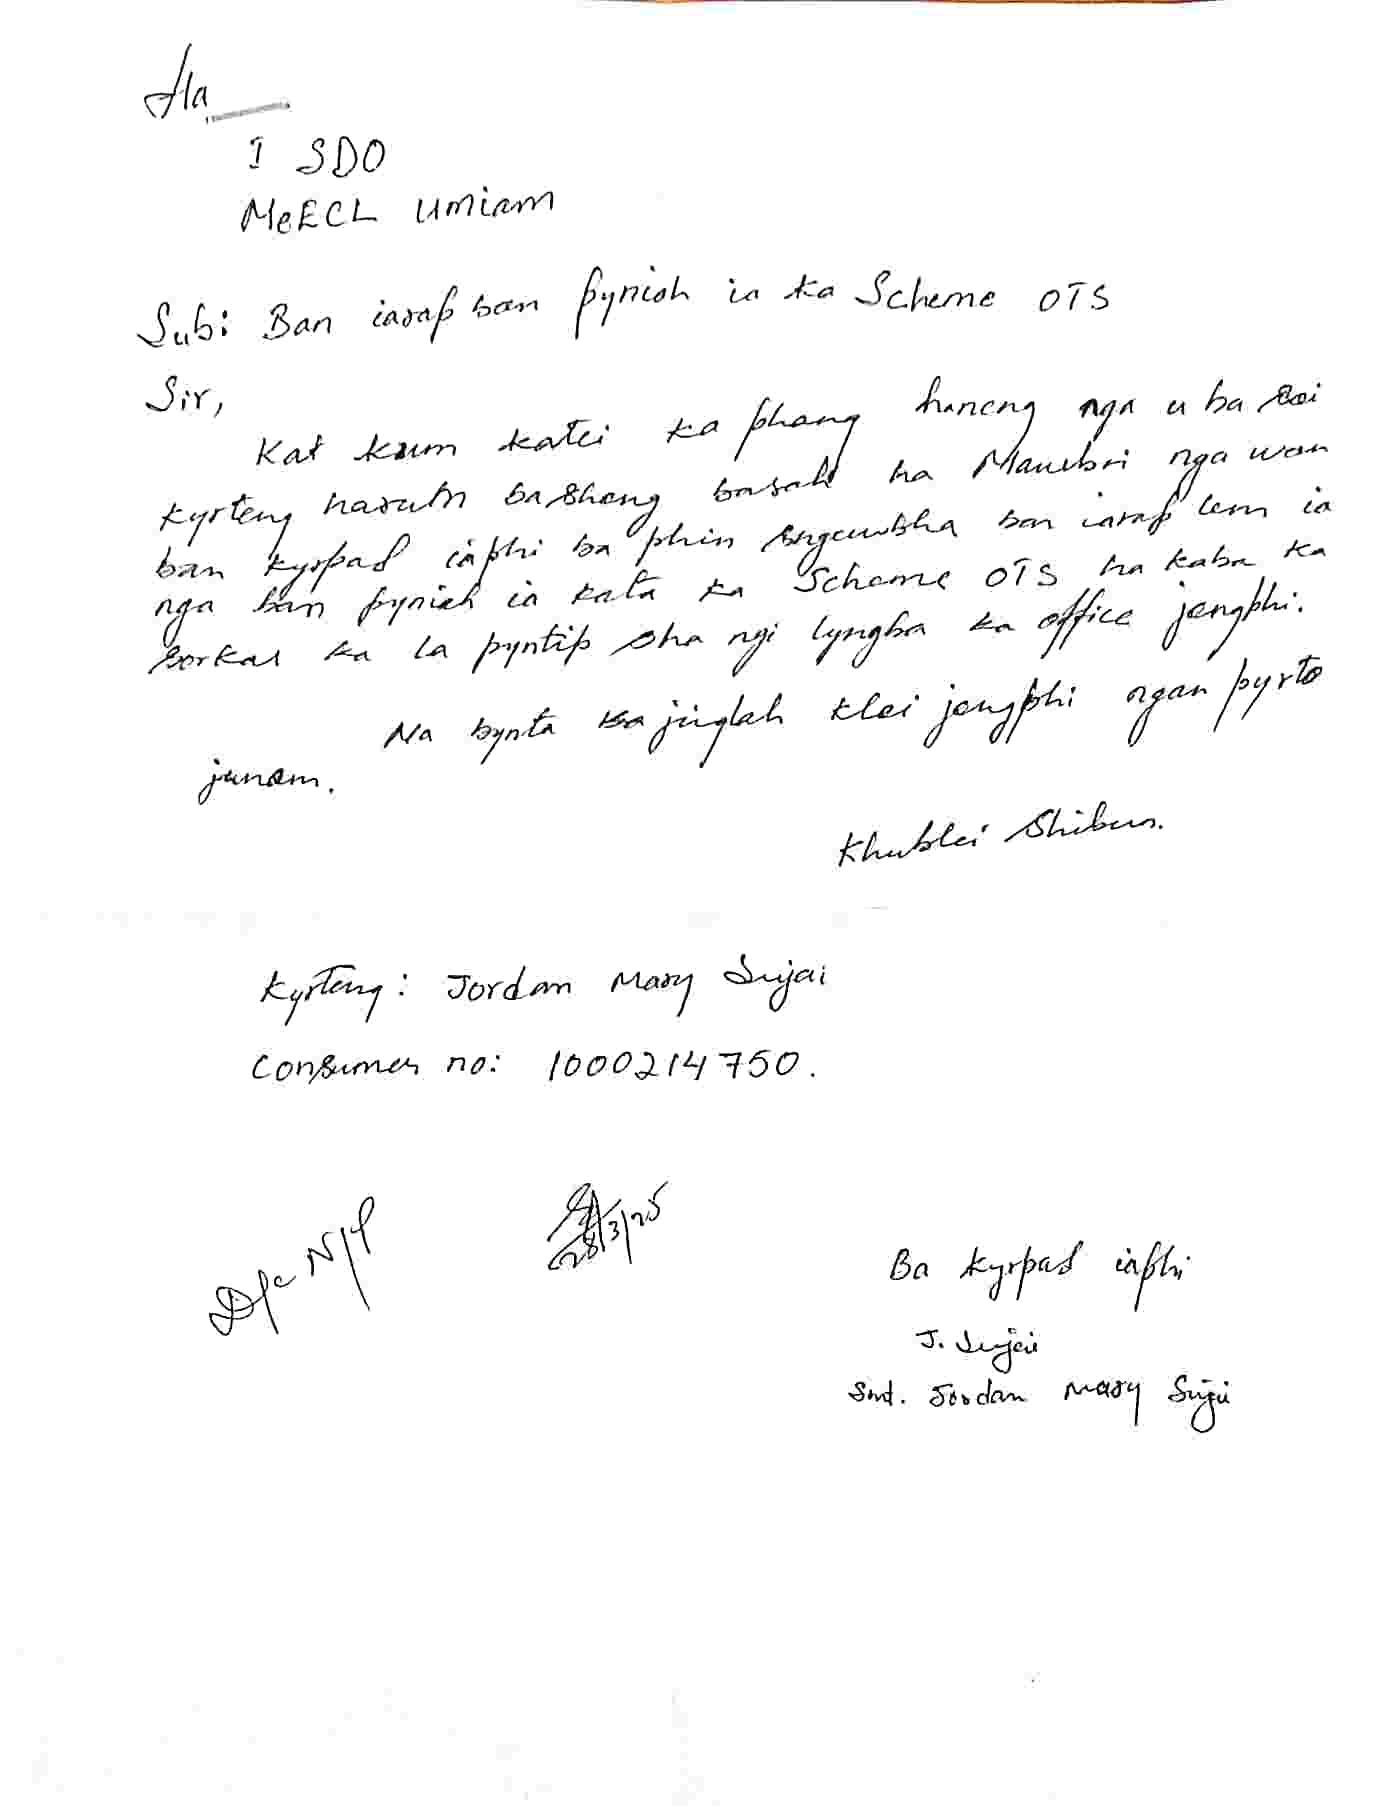 Ha
I SDO
MeECL Umiam
Sub: Ban iarap ban pynioh ia ka Scheme OTS
Sir,
Kat kum katei ka phang haneng nga u ba soi
kyrteng harum ba shong basah ha Mawbri nga wan
ban kyrpad iaphi ba phin sngewbha ban iarap lem ia
nga ban pynioh ia kata ka Scheme OTS ha kaba ka
sorkar ka la pyntip sha ngi lyngba ka office jongphi.
Na bynta ka jinglah klei jongphi ngan pyrto
junom.
Khublei Shibun.
Kyrteng: Jordan Mary Sujai
Consumer no: 1000214750.
28/3/25
Ba kyrpad iaphi
J. Sujai
Smt. Jordan Mary Sujai